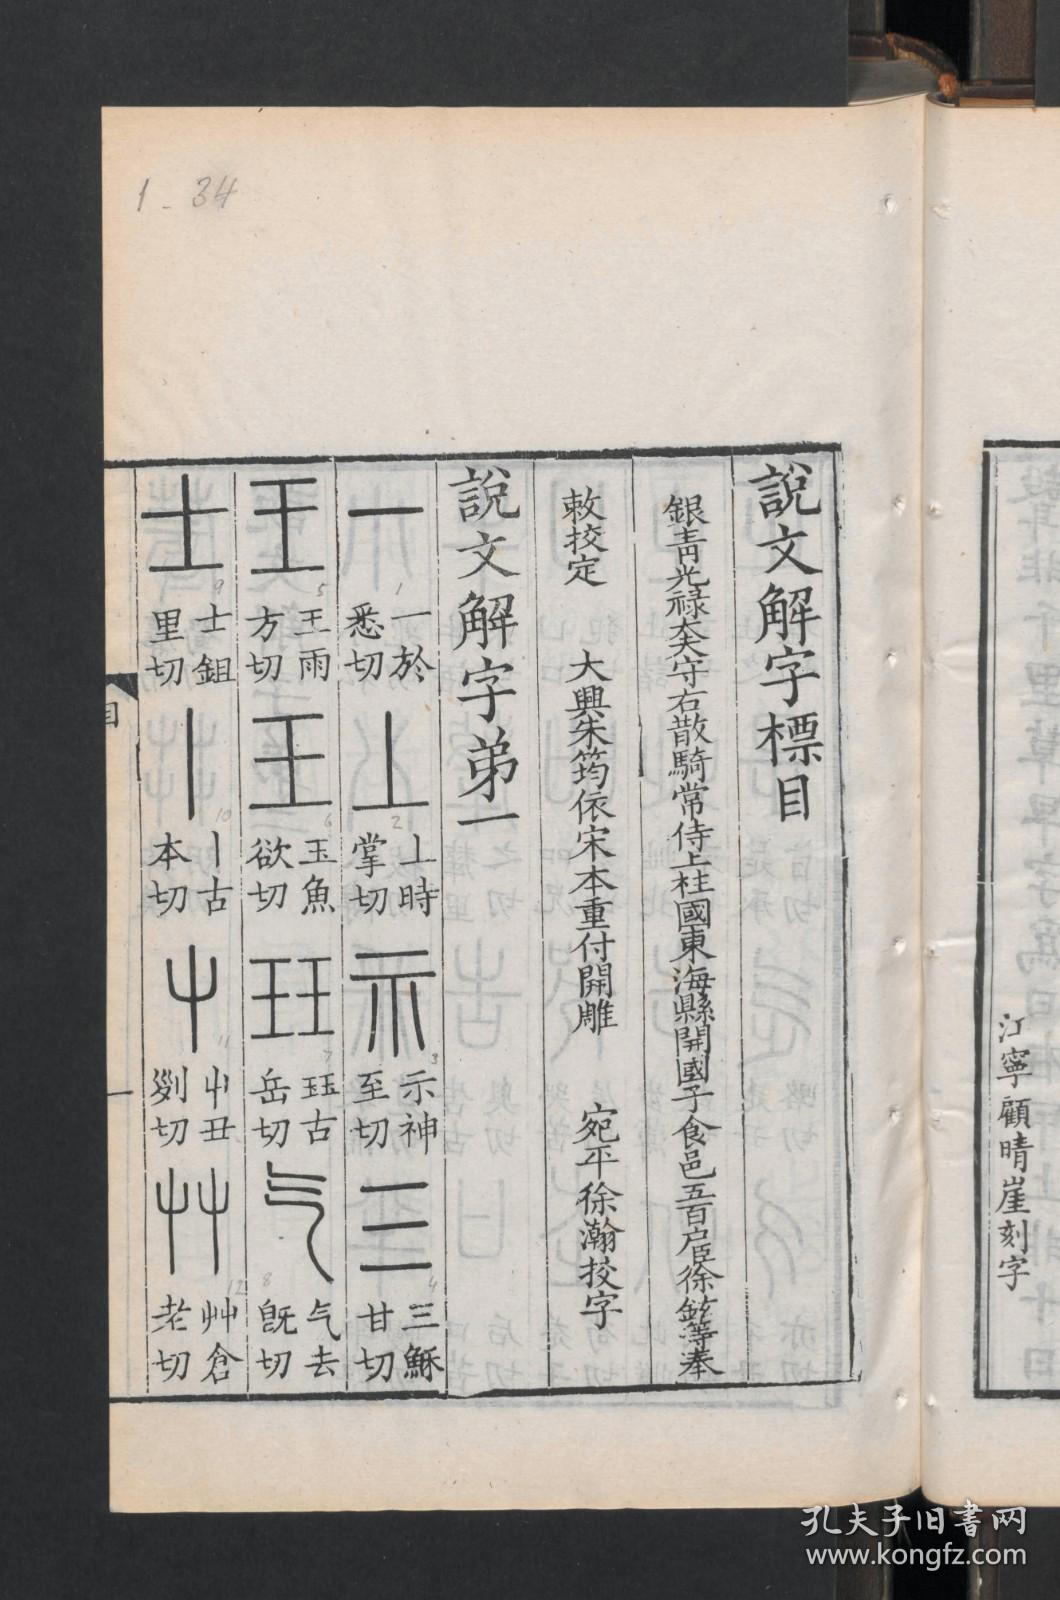 江寧顧晴崖刻字
說文解字標目
銀青光祿大夫守右散騎常侍上柱國東海縣開國子食邑五百戶臣徐鉉等奉
敕挍定 大興朱筠依宋本重付開雕 宛平徐瀚挍字
說文解字弟一
一 一於悉切 丄 丄時掌切 示 示神至切 三 三穌甘切
王 王雨方切 玉 玉魚欲切 玨 玨古岳切 气 气去旣切
士 士鉏里切 丨 丨古本切 屮 屮丑𠛱切 艸 艸倉老切
目
一
1-34
1
2
3
4
5
6
7
8
9
10
11
12
孔夫子旧书网
www.kongfz.com